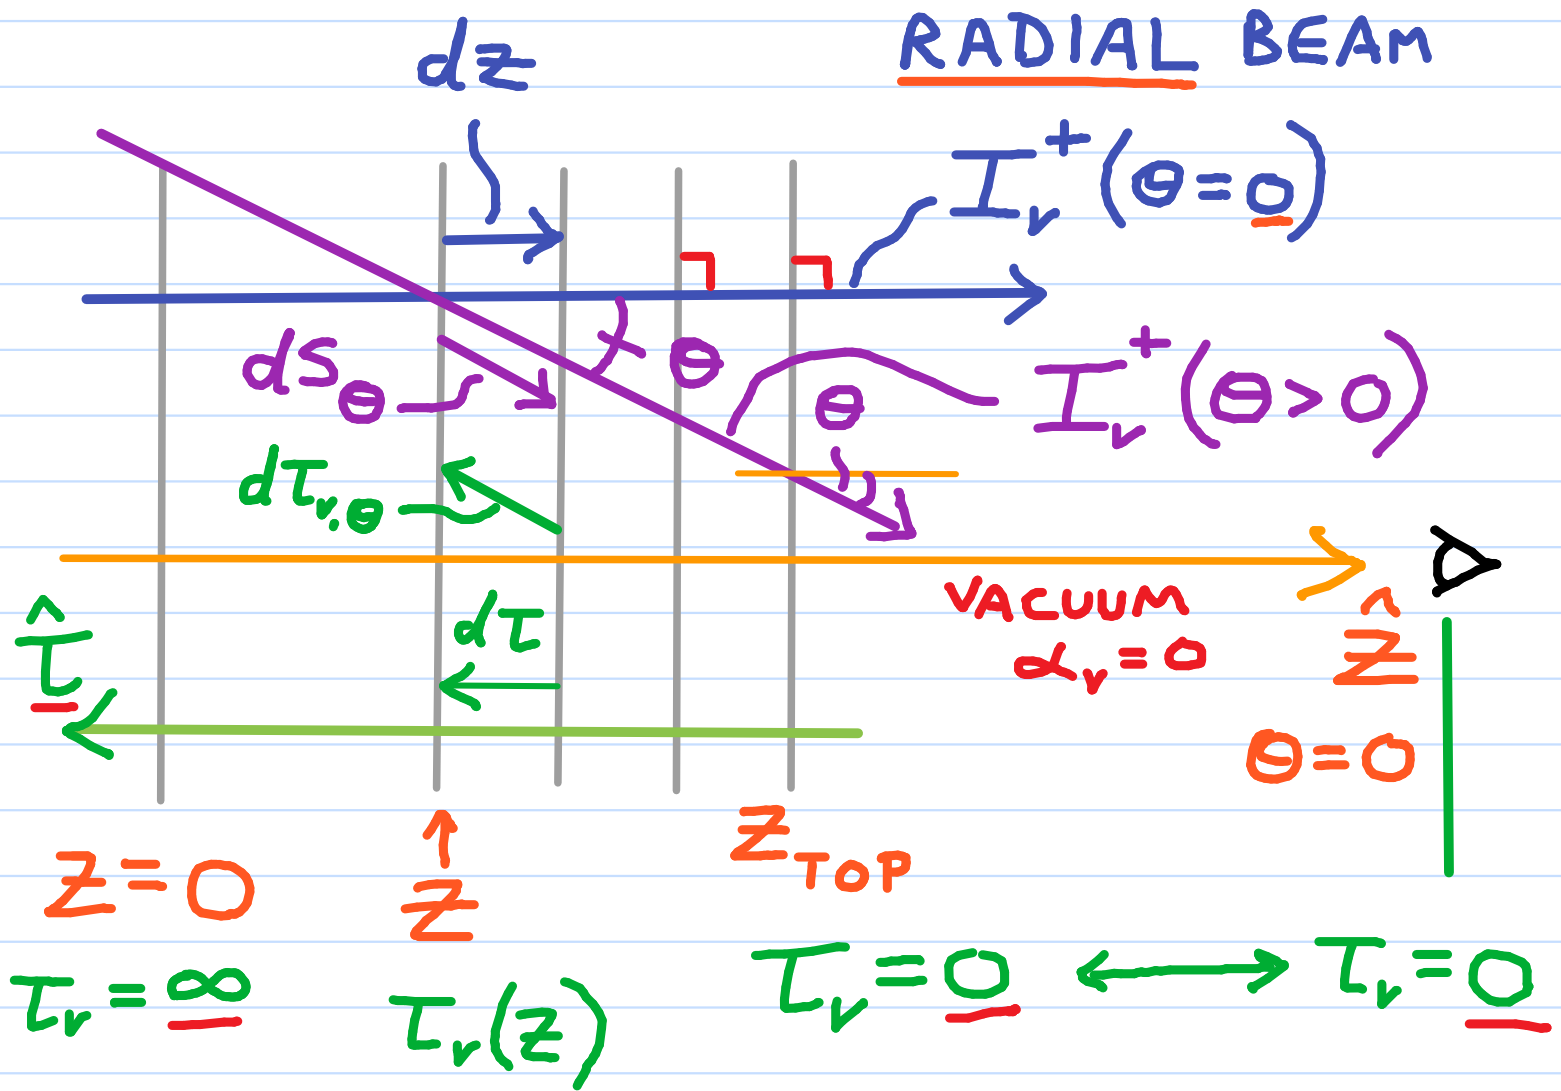 dz
RADIAL BEAM
I_ν^+ (θ=0)
ds_θ
θ
θ
I_ν^+ (θ>0)
dτ_ν,θ
VACUUM
α_ν=0
τ̂
dτ
ẑ
θ=0
z=0
z
z_TOP
τ_ν=∞
τ_ν(z)
τ_ν=0 ↔ τ_ν=0